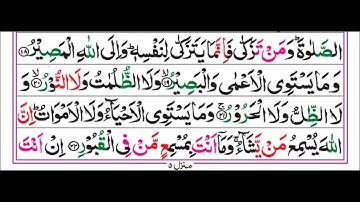 الصَّلٰوةَ ؕ وَمَنْ تَزَكّٰى فَاِنَّمَا يَتَزَكّٰى لِنَفْسِهٖ ؕ وَاِلَى اللّٰهِ الْمَصِيْرُ ﴿۱۸﴾
وَمَا يَسْتَوِى الْاَعْمٰى وَالْبَصِيْرُ ﴿۱۹﴾ وَلَا الظُّلُمٰتُ وَلَا النُّوْرُ ﴿۲۰﴾
وَلَا الظِّلُّ وَلَا الْحَرُوْرُ ﴿۲۱﴾ وَمَا يَسْتَوِى الْاَحْيَآءُ وَلَا الْاَمْوَاتُ ؕ اِنَّ
اللّٰهَ يُسْمِعُ مَنْ يَّشَآءُ ۚ وَمَاۤ اَنْتَ بِمُسْمِعٍ مَّنْ فِى الْقُبُوْرِ ﴿۲۲﴾ اِنْ اَنْتَ
منزل ۵